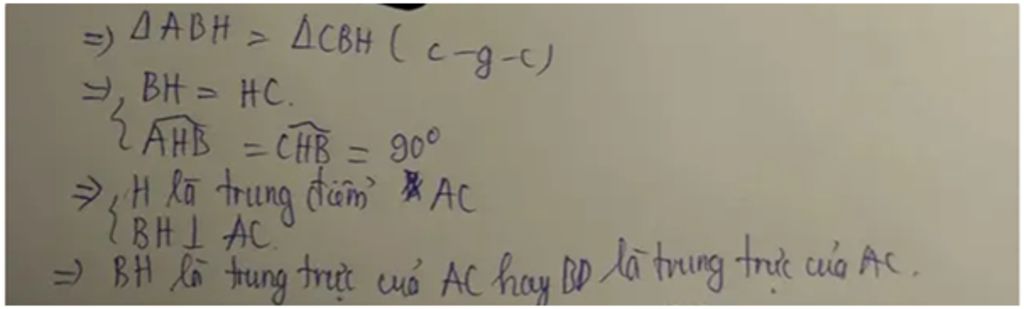 => ΔABH = ΔCBH ( c-g-c)
=> { BH = HC.
{ \widehat{AHB} = \widehat{CHB} = 90°
=> { H là trung điểm AC
{ BH ⊥ AC.
=> BH là trung trực của AC hay BD là trung trực của AC.